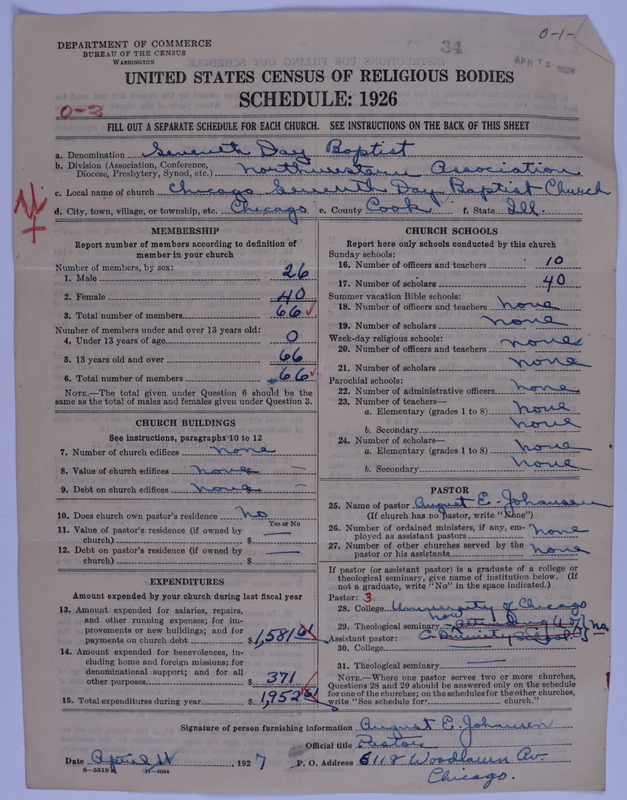 DEPARTMENT OF COMMERCE
BUREAU OF THE CENSUS
WASHINGTON
34
0-1-
UNITED STATES CENSUS OF RELIGIOUS BODIES
SCHEDULE: 1926
0-3
FILL OUT A SEPARATE SCHEDULE FOR EACH CHURCH. SEE INSTRUCTIONS ON THE BACK OF THIS SHEET
a. Denomination Seventh Day Baptist
b. Division (Association, Conference, Diocese, Presbytery, Synod, etc.) Northwestern Association
c. Local name of church Chicago Seventh Day Baptist Church
d. City, town, village, or township, etc. Chicago e. County Cook f. State Ill.
MEMBERSHIP
Report number of members according to definition of
member in your church
Number of members, by sex:
1. Male 26
2. Female 40
3. Total number of members 66
Number of members under and over 13 years old:
4. Under 13 years of age 0
5. 13 years old and over 66
6. Total number of members 66
NOTE.—The total given under Question 6 should be
same as the total of males and females given under Question 3.
CHURCH BUILDINGS
See instructions, paragraphs 10 to 12
7. Number of church edifices none
8. Value of church edifices none —
9. Debt on church edifices none —
10. Does church own pastor's residence? No
Yes or No
11. Value of pastor's residence (if owned by
church) $ —
12. Debt on pastor's residence (if owned by
church) $ —
EXPENDITURES
Amount expended by your church during last fiscal year
13. Amount expended for salaries, repairs,
and other running expenses; for im-
provements or new buildings; and for
payments on church debt $ 1,581 61
14. Amount expended for benevolences, in-
cluding home and foreign missions; for
denominational support; and for all
other purposes $ 371
15. Total expenditures during year $ 1,952 61
CHURCH SCHOOLS
Report here only schools conducted by this church
Sunday schools:
16. Number of officers and teachers 10
17. Number of scholars 40
Summer vacation Bible schools:
18. Number of officers and teachers none
19. Number of scholars none
Week-day religious schools:
20. Number of officers and teachers none
21. Number of scholars none
Parochial schools:
22. Number of administrative officers none
23. Number of teachers—
a. Elementary (grades 1 to 8) none
b. Secondary none
24. Number of scholars—
a. Elementary (grades 1 to 8) none
b. Secondary none
PASTOR
25. Name of pastor August E. Johansen
(If church has no pastor, write "None")
26. Number of ordained ministers, if any, em-
ployed as assistant pastors none
27. Number of other churches served by the
pastor or his assistants none
If pastor (or assistant pastor) is a graduate of a college or
theological seminary, give name of institution below. (If
not a graduate, write "No" in the space indicated.)
Pastor: 3
28. College University of Chicago
29. Theological seminary now attending U of C. Divinity School no
Assistant pastor:
30. College
31. Theological seminary —
NOTE.—Where one pastor serves two or more churches,
Questions 28 and 29 should be answered only on the schedule
for one of the churches; on the schedules for the other churches,
write "See schedule for church."
Signature of person furnishing information August E. Johansen
Official title Pastor
Date April 11, 1927 P. O. Address 6118 Woodlawn Av.
8—5518 11—9054
Chicago.